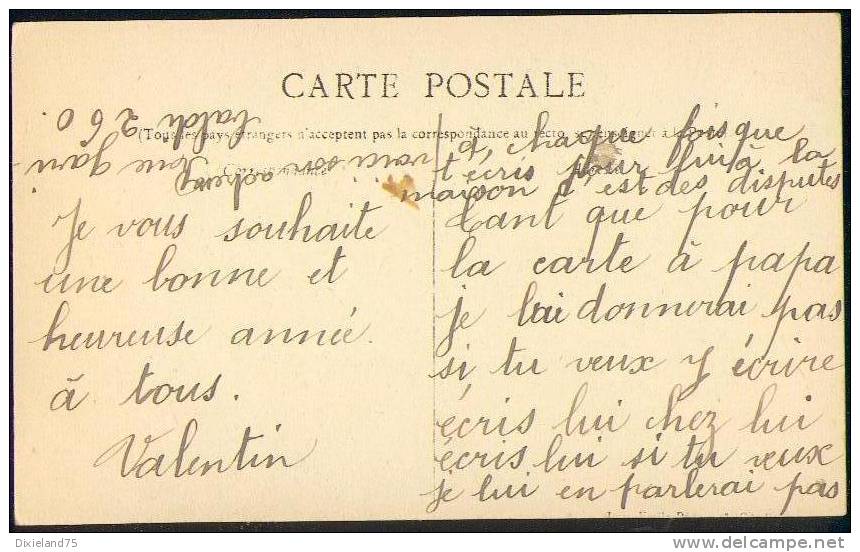 CARTE POSTALE
(Tous les pays étrangers n'acceptent pas la correspondance au recto, se renseigner à la
Correspondance
Je vous souhaite
une bonne et
heureuse année
à tous.
Valentin
à chaque fois que
t'écris pour lui à la
maison c'est des disputes
tant que pour
la carte à papa
je lui donnerai pas
si tu veux y écrire
écris lui chez lui
écris lui si tu veux
je lui en parlerai pas
voici son
rue Gari-
baldi 260.
Dixieland75
www.delcampe.net